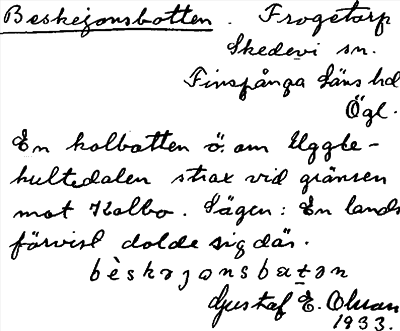 Beskejonsbotten. Frogetorp
Skedevi sn.
Finspånga läns hd
Ögl.
En kolbotten ö. om Uggle-
hultedalen strax vid gränsen
mot Kolbo. Sägen: En lands
förvisl dolde sig där.
bèskəjɔnsbɑtən
Gustaf E. Olsson
1933.